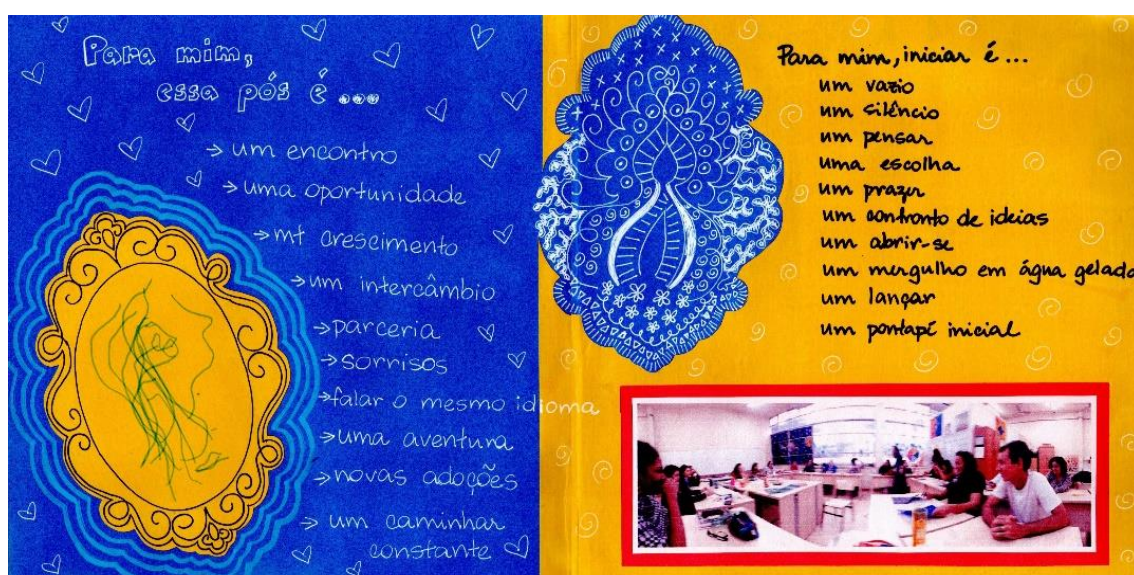 Para mim,
essa pós é...
→ um encontro
→ uma oportunidade
→ mt crescimento
→ um intercâmbio
→ parceria
→ sorrisos
→ falar o mesmo idioma
→ uma aventura
→ novas adoções
→ um caminhar
constante
Para mim, iniciar é...
um vazio
um silêncio
um pensar
uma escolha
um prazer
um confronto de ideias
um abrir-se
um mergulho em água gelada
um lançar
um pontapé inicial